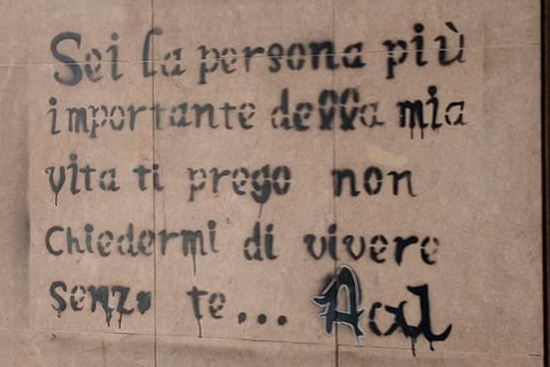 Sei la persona più
importante della mia
vita ti prego non
Chiedermi di vivere
Senza te...